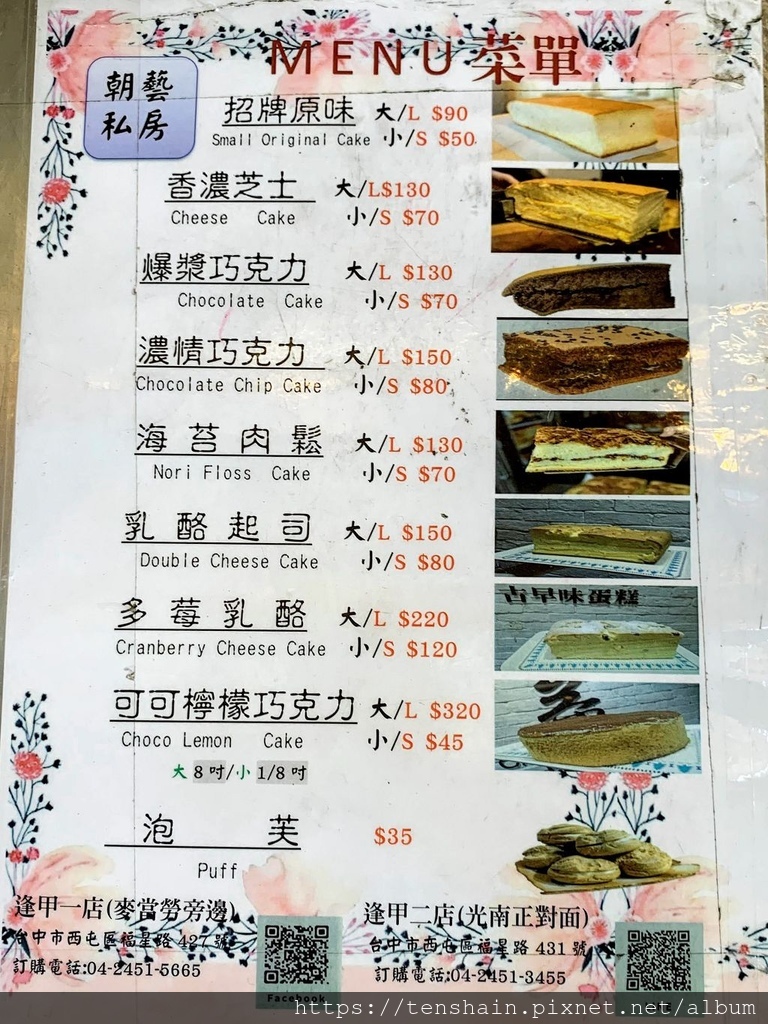 MENU 菜單
朝藝
私房
招牌原味 大/L $90
Small Original Cake 小/S $50
香濃芝士 大/L$130
Cheese Cake 小/S $70
爆漿巧克力 大/L $130
Chocolate Cake 小/S $70
濃情巧克力 大/L $150
Chocolate Chip Cake 小/S $80
海苔肉鬆 大/L $130
Nori Floss Cake 小/S $70
乳酪起司 大/L $150
Double Cheese Cake 小/S $80
古早味蛋糕
多莓乳酪 大/L $220
Cranberry Cheese Cake 小/S $120
可可檸檬巧克力 大/L $320
Choco Lemon Cake 小/S $45
大 8吋/小 1/8吋
泡芙 $35
Puff
逢甲一店(麥當勞旁邊)
台中市西屯區福星路 427 號
訂購電話:04-2451-5665
Facebook
逢甲二店(光南正對面)
台中市西屯區福星路 431 號
訂購電話:04-2451-3455
https://tenshain.pixnet.net/album